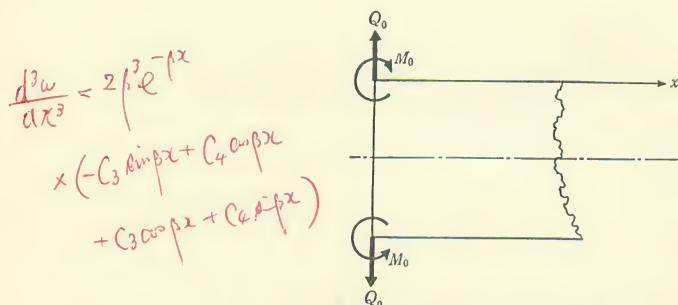 d³w/dx³ = 2β³e^{-βx}
× (-C₃ sin βx + C₄ cos βx
+ C₃ cos βx + C₄ sin βx)
Q₀
M₀
x
M₀
Q₀